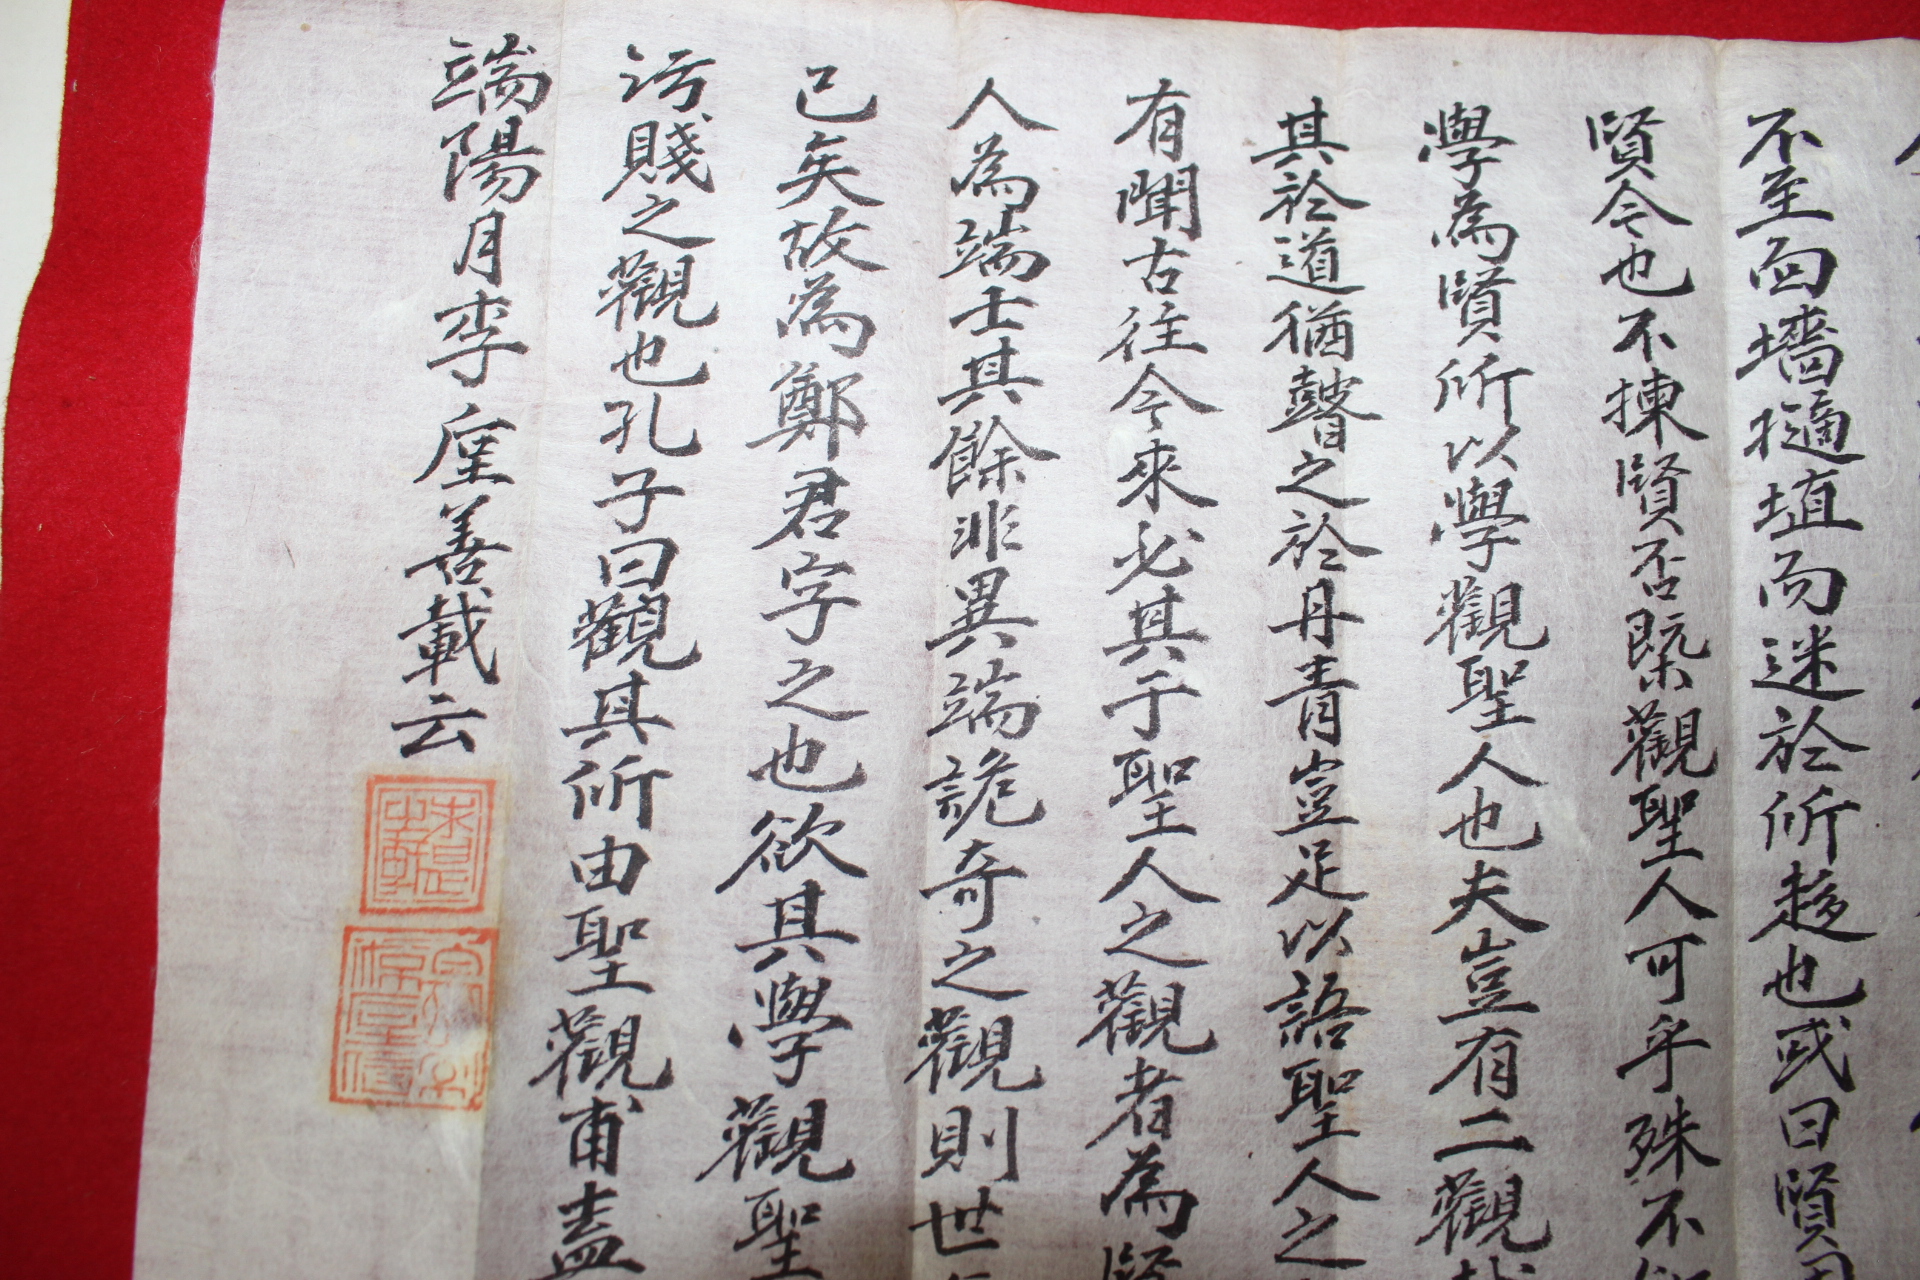 不至面墻擿埴而迷於所趍也或曰賢
賢令也不揀賢否槩觀聖人可乎殊不
學為賢所以學觀聖人也夫豈有二觀
其於道猶瞽之於丹青豈足以語聖人之
有聞古往今來必其于聖人之觀者為賢
人為端士其餘非異端詭奇之觀則世
已矣故為鄭君字之也欲其學觀聖
污賤之觀也孔子曰觀其所由聖觀甫盖
端陽月李
善載云